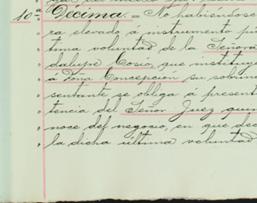 10ª Décima = No habiéndose
ra elevada á instrumento pú
tima voluntad de la Señora
dalupe Cosío, que instituy
á Doña Concepción su sobrin
sentante se obliga á present
tencia del Señor Juez quien
noce del negocio, en que dec
la dicha última voluntad